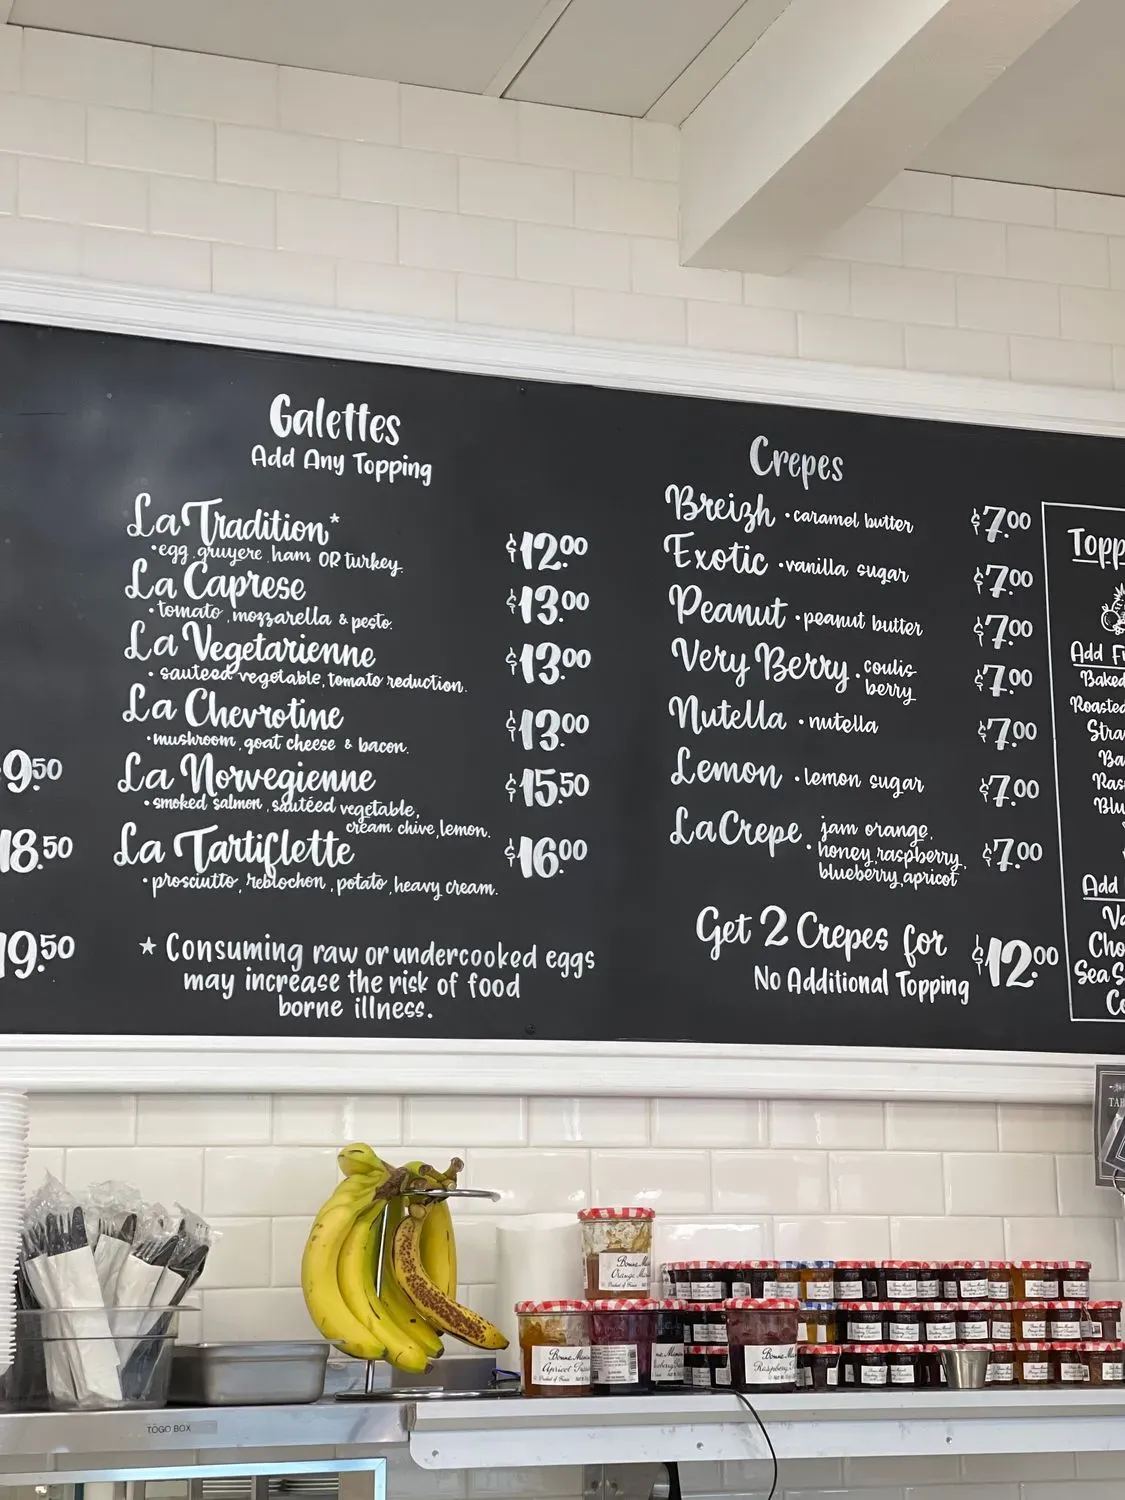 Galettes
Add Any Topping
La Tradition* $12.00
•egg, gruyere, ham OR turkey.
La Caprese $13.00
•tomato, mozzarella & pesto.
La Vegetarienne $13.00
•sauteed vegetable, tomato reduction.
La Chevrotine $13.00
•mushroom, goat cheese & bacon.
La Norwegienne $15.50
•smoked salmon, sautéed vegetable,
cream chive, lemon.
La Tartiflette $16.00
•prosciutto, reblochon, potato, heavy cream.
* Consuming raw or undercooked eggs
may increase the risk of food
borne illness.
9.50
18.50
19.50
Crepes
Breizh •caramel butter $7.00
Exotic •vanilla sugar $7.00
Peanut •peanut butter $7.00
Very Berry •coulis $7.00
berry
Nutella •nutella $7.00
Lemon •lemon sugar $7.00
La Crepe •jam orange, $7.00
honey, raspberry,
blueberry, apricot
Get 2 Crepes for $12.00
No Additional Topping
Add
Baked
Roasted
Add
Sea
Bonne Maman
Orange
Product of France
Bonne Maman
Apricot
Bonne Maman
Raspberry
TOGO BOX